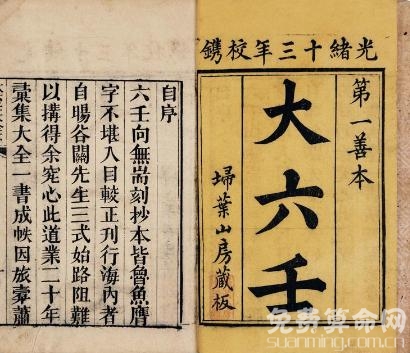 光緒十三年校鐫
第一善本
大六壬
埽葉山房藏板
自序
六壬向無耑刻抄本皆魯魚膺
字不堪入目較正刊行海內者
自暘谷關先生三式始路阻難
以搆得余究心此道業二十年
彙集大全一書成帙因旅橐蕭
免费算命网
suanming.com.cn